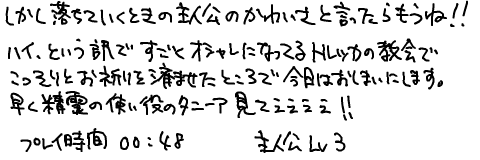 しかし落ちていくときの主人公のかわいさと言ったらもうね!!
ハイ、という訳ですごくオシャレになってるトルッカの教会で
こっそりとお祈りを済ませたところで今日はおしまいにします。
早く精霊の使い役のタニア見てえええぇ!!
プレイ時間 00:48 主人公Lv3